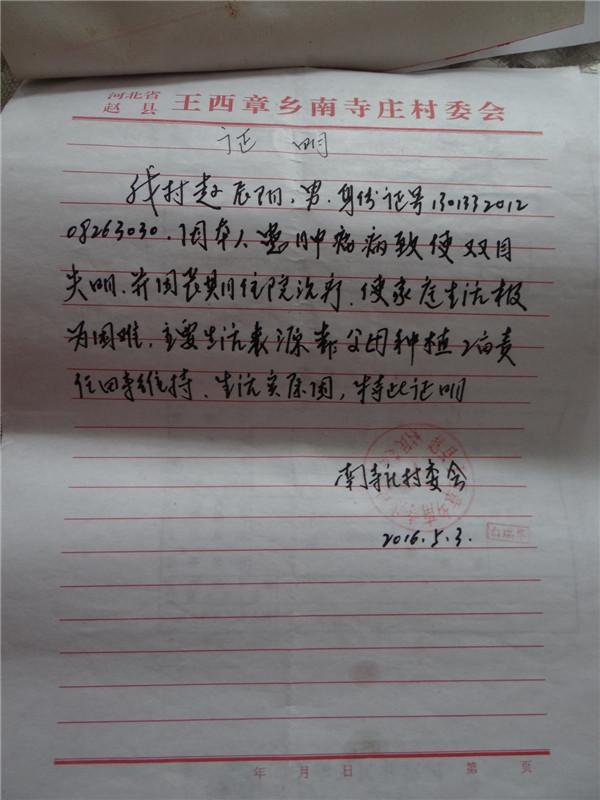 河北省
赵县 王西章乡南寺庄村委会
证 明
我村赵辰阳、男、身份证号1301332012
08263030、因本人患肿瘤病致使双目
失明、并因长期住院治疗、使家庭生活极
为困难、主要生活来源靠父母种植2亩责
任田来维持、生活实际困,特此证明
南寺庄村委会
2016.5.3.
年 月 日 第 页